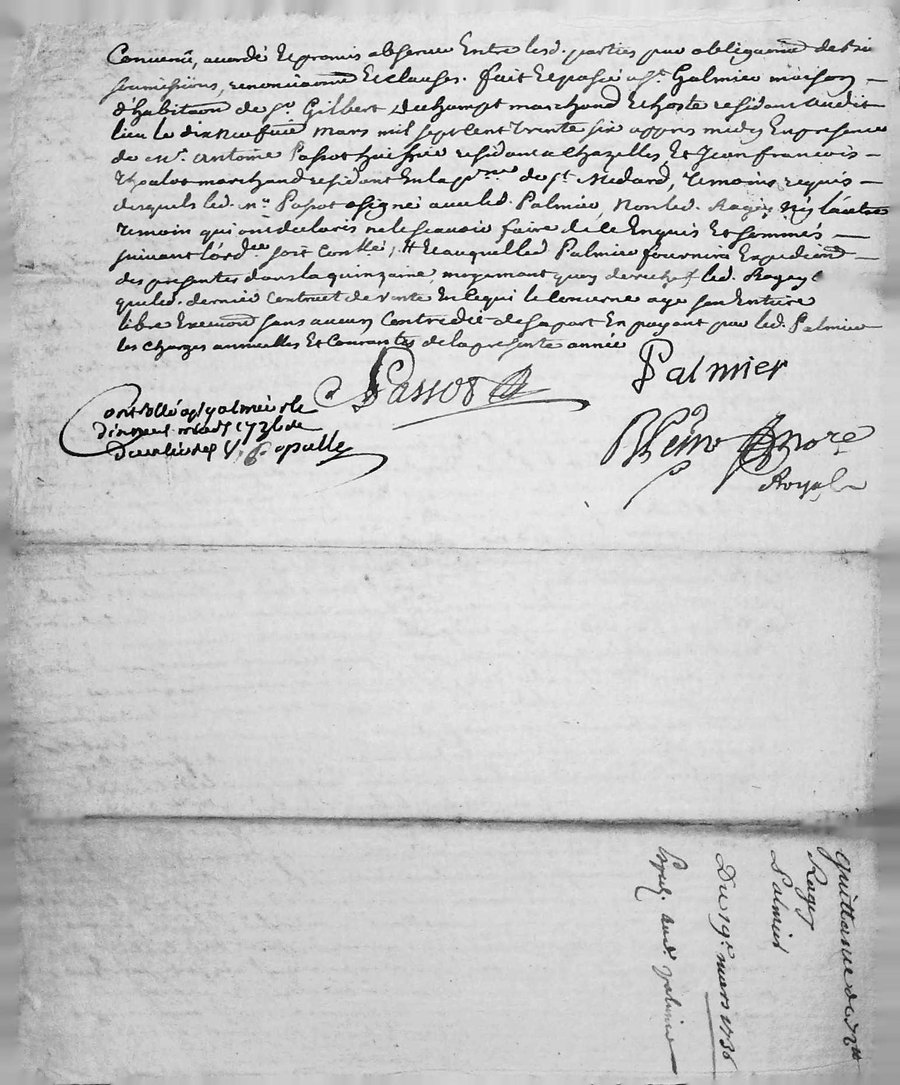 Convenu, accordé et promis observer Entre lesd. parties par obligaond de
soumissions, renonciaond et clauses. fait et passé a St. Galmier maison
d'habitaon de Sr. Gilbert Duchampt marchand et hoste residant audit
lieu le dix neufvie mars mil sept cent trente six appres midy En presence
de Mr. Antoine Passot huissier residant a Chazelles, Et Jean francois
Thoulot marchand residant En la pnne de St. Medard, temoins requis
desquels led. Mr. Passot a signé avec led. Palmier, Non led. Ragey Ny l'autre
temoin qui ont declaris ne le scavoir faire de ce Enquis Et sommés
suivant l'ordce soit Conllé, Et auquel led. Palmier fournira Expediond
des presentes dans la quinzaine, moyennant quoy led. Ragey
que led. dernier Contract de vente En ce qui le Concerne aye son Entiere
libre Execuond sans aucun Contredit de sa part En payant par led. Palmier
les Charges annuelles Et Courantes de la presente année
Passot
Palmier
Controllé a St galmier le
dix neuf mars 1736 R
Douze livres
Nore
Royal
Quittance de 72 ll
Ragey
Palmier
Du 19e. mars 1736
Exped. aud. palmier